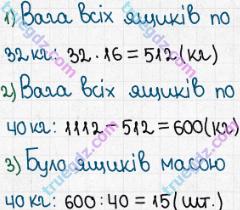 1) Вага всіх ящиків по
32 кг: 32 · 16 = 512 (кг)
2) Вага всіх ящиків по
40 кг: 1112 - 512 = 600 (кг)
3) Було ящиків масою
40 кг: 600 : 40 = 15 (шт.)